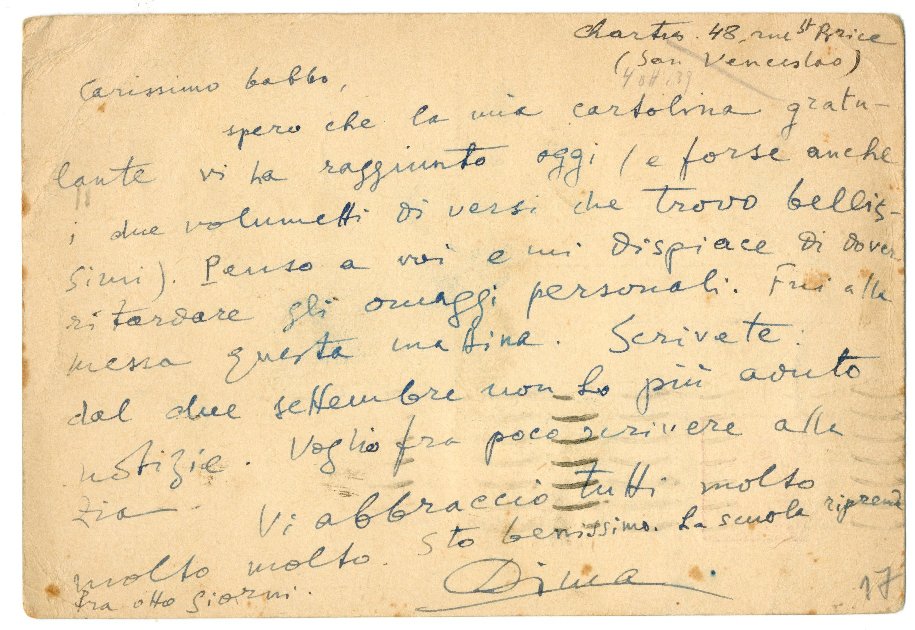 Chartres. 48, rue St Brice
(San Venceslao)
4 ott. 39
Carissimo babbo,
spero che la mia cartolina gratu-
lante vi ha raggiunto oggi (e forse anche
i due volumetti di versi che trovo bellis-
simi). Penso a voi e mi dispiace di dover
ritardare gli omaggi personali. Fui alla
messa questa mattina. Scrivete:
dal due settembre non ho più avuto
notizie. Voglio fra poco scrivere alla
zia. Vi abbraccio tutti molto
molto molto. Sto benissimo. La scuola riprende
fra otto giorni.
Dima
17